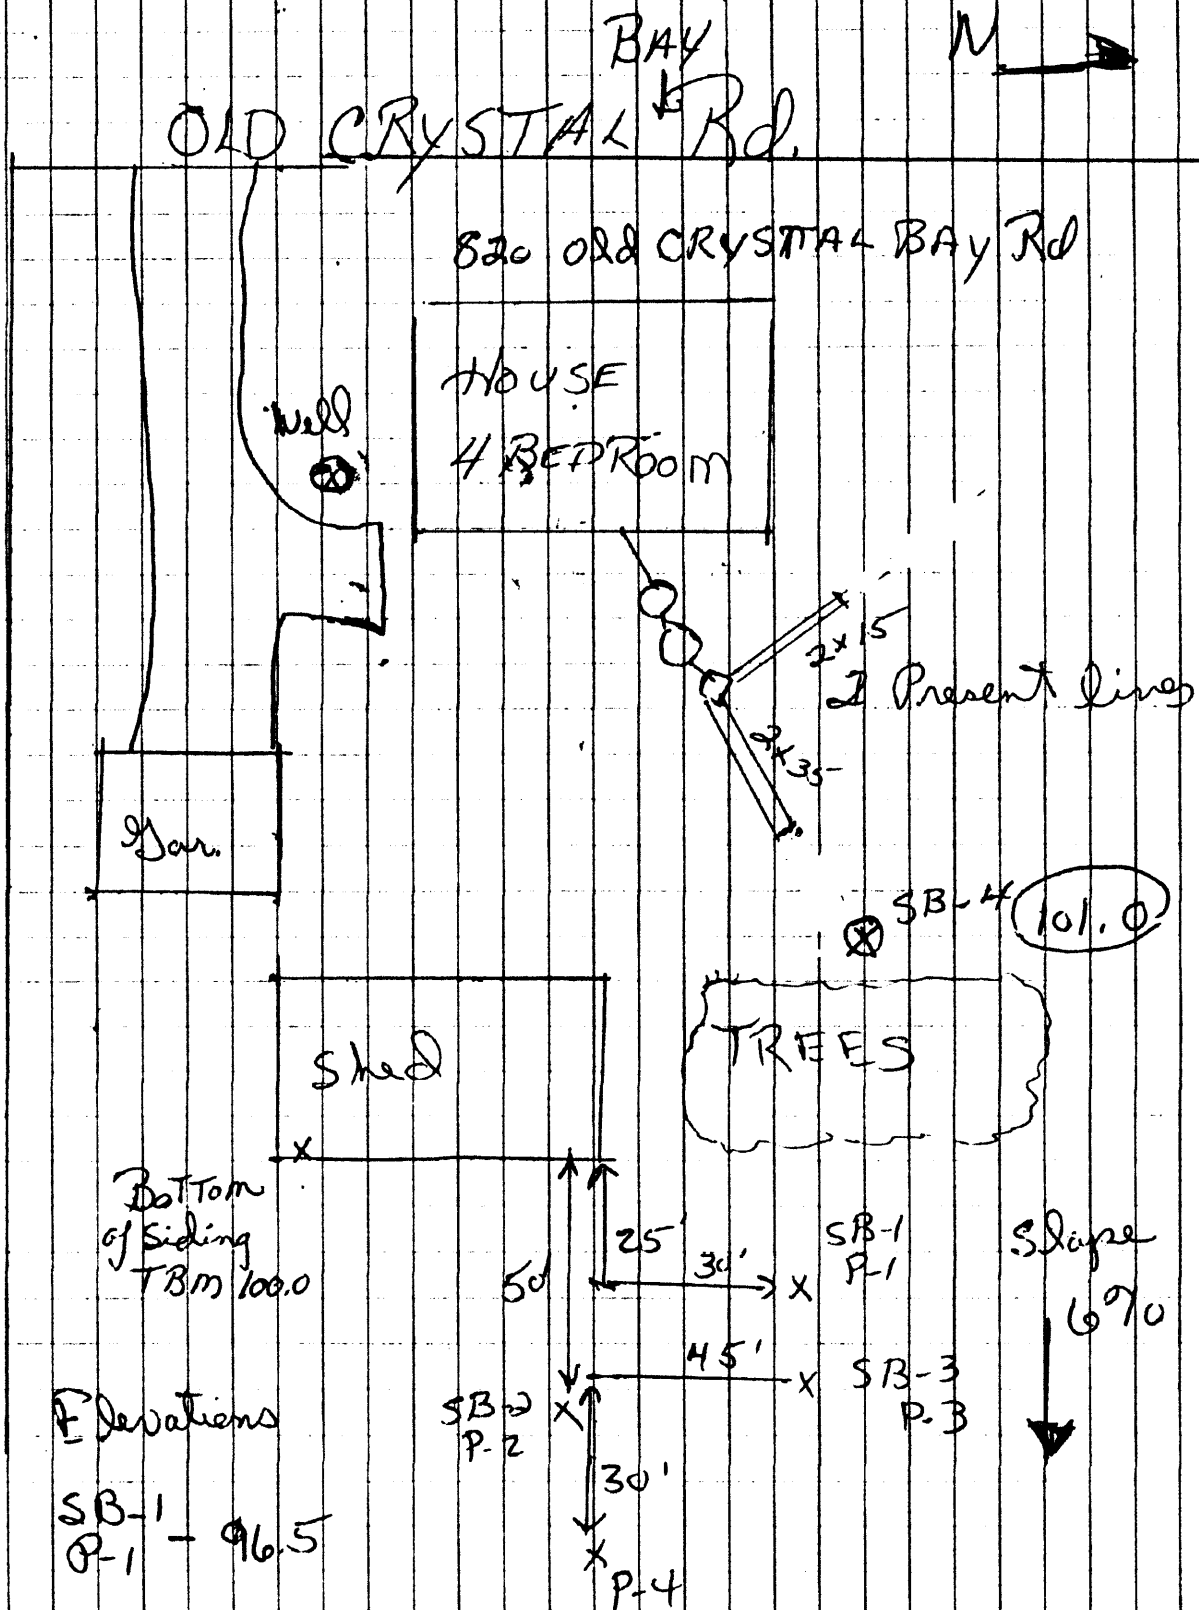 N
BAY
OLD CRYSTAL Rd.
820 Old CRYSTAL BAY Rd
HOUSE
4 BEDROOM
Well
2x15
2 Present lines
2x35
Gar.
SB-4 101.0
TREES
Shed
x
Bottom
of Siding
TBM 100.0
25'
50'
30' x
SB-1
P-1
Slope
6%
45' x
SB-3
P-3
SB-2 x
P-2
30'
x
P-4
Elevations
SB-1
P-1 - 96.5